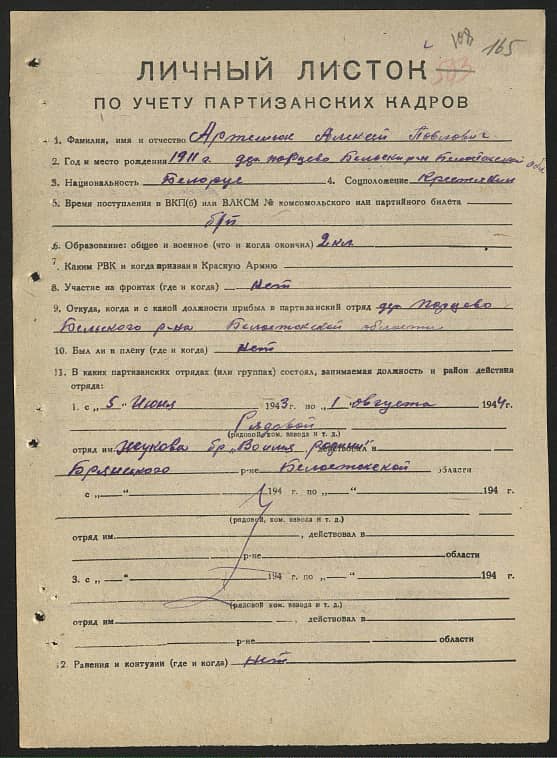 108 165
583
ЛИЧНЫЙ ЛИСТОК
ПО УЧЕТУ ПАРТИЗАНСКИХ КАДРОВ
1. Фамилия, имя и отчество Артемюк Алексей Павлович
2. Год и место рождения 1911 г. дер. Парцево Бельский р-н Белостокской обл
3. Национальность Белорус 4. Соцположение Крестянин
5. Время поступления в ВКП(б) или ВЛКСМ № комсомольского или партийного билета
б/п
6. Образование: общее и военное (что и когда окончил) 2 кл
7. Каким РВК и когда призван в Красную Армию
8. Участие на фронтах (где и когда) нет
9. Откуда, когда и с какой должности прибыл в партизанский отряд дер. Парцево
Бельского р-на Белостокской области
10. Был ли в плену (где и когда) нет
11. В каких партизанских отрядах (или группах) состоял, занимаемая должность и район действия
отряда:
1. с „5“ Июня 1943 г. по „1“ Августа 1944 г.
Рядовой
(рядовой, ком. взвода и т. д.)
отряд им Жукова бр. „ родину“ действовал в
Брянского р-не Белостокской области
с „ “ 194 г. по „ “ 194 г.
(рядовой, ком. взвода и т. д.)
отряд им , действовал в
р-не области
3. с „ “ 194 г. по „ “ 194 г.
(рядовой, ком. взвода и т. д.)
отряд им , действовал в
р-не области
2. Ранения и контузии (где и когда) нет